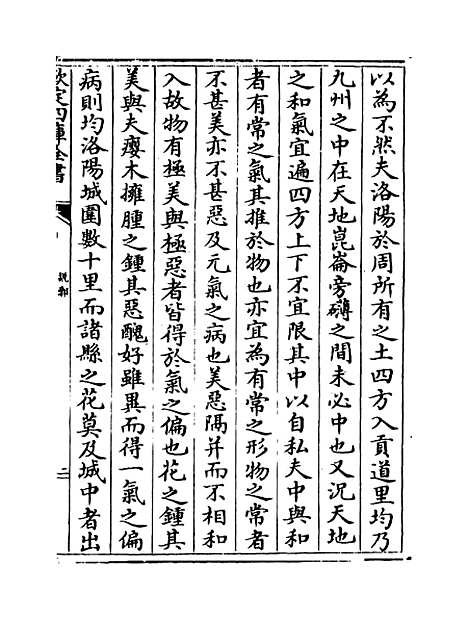 以為不然夫洛陽於周所有之土四方入貢道里均乃
九州之中在天地崑崙旁礴之間未必中也又況天地
之和氣宜遍四方上下不宜限其中以自私夫中與和
者有常之氣其推於物也亦宜為有常之形物之常者
不甚美亦不甚惡及元氣之病也美惡隔并而不相和
入故物有極美與極惡者皆得於氣之偏也花之鍾其
美與夫癭木擁腫之鍾其惡醜好雖異而得一氣之偏
病則均洛陽城圍數十里而諸縣之花莫及城中者出
欽定四庫全書
說郛
二